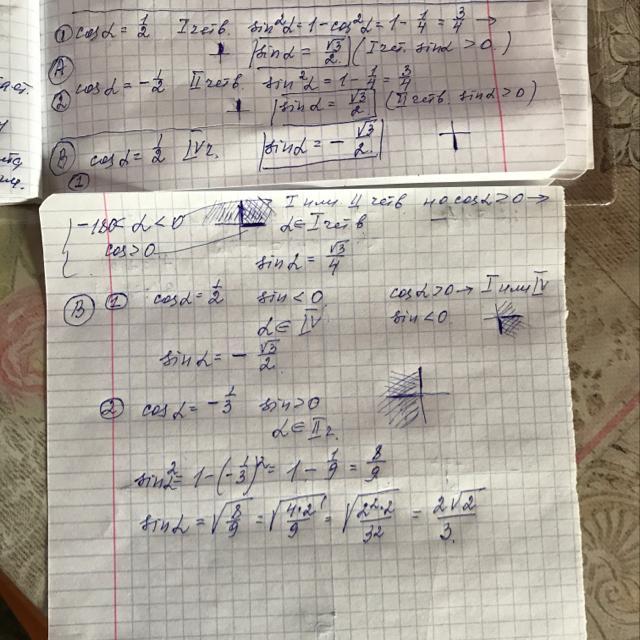 ① cosα = 1/2 I четв. sin²α = 1 - cos²α = 1 - 1/4 = 3/4 →
|sinα = √3/2| (I чет. sinα > 0.)
Ⓐ
② cosα = -1/2 II четв. sin²α = 1 - 1/4 = 3/4
|sinα = √3/2| (II четв sinα > 0)
Ⓑ cosα = 1/2 IV г. |sinα = -√3/2.|
①
{ -180 < α < 0 I или 4 четв но cosα > 0 →
cos > 0 α ∈ I четв.
sinα = √3/4
Ⓑ ① cosα = 1/2 sin < 0 cosα > 0 → I или IV
α ∈ IV sin < 0.
sinα = -√3/2.
② cosα = -1/3 sin > 0
α ∈ II г.
sin²α = 1 - (-1/3)² = 1 - 1/9 = 8/9
sinα = √8/9 = √4·2/9 = √2²·2/3² = 2√2/3.